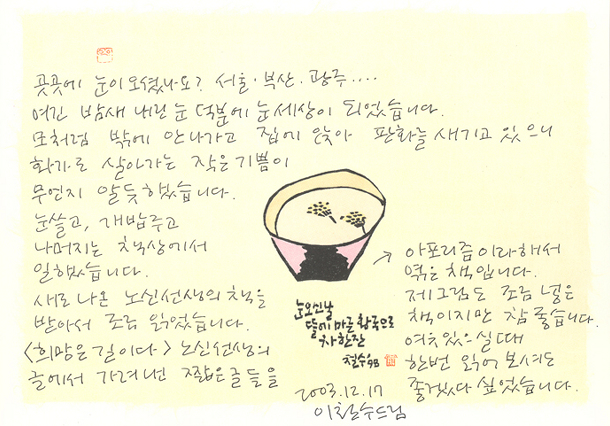 곳곳에 눈이 오셨나요? 서울·부산·광주....
여긴 밤새 내린 눈 덕분에 눈세상이 되었습니다.
모처럼 밖에 안나가고 집에 앉아 판화를 새기고 있으니
화가로 살아가는 작은 기쁨이
무언지 알듯 했습니다.
눈쓸고, 개밥주고
나머지는 책상에서
일했습니다.
새로 나온 노신선생의 책을
받아서 조금 읽었습니다.
<희망은 길이다> 노신선생의
글에서 가려낸 짧은 글들을
→ 아포리즘이라해서
엮은 책입니다.
제그림도 조금 넣은
책이지만 참 좋습니다.
여유있으실 때
한번 읽어 보셔도
좋겠다 싶었습니다.
눈오신날
뜰에 마른 황국으로
차 한잔
철수 98
2003.12.17
이철수드림